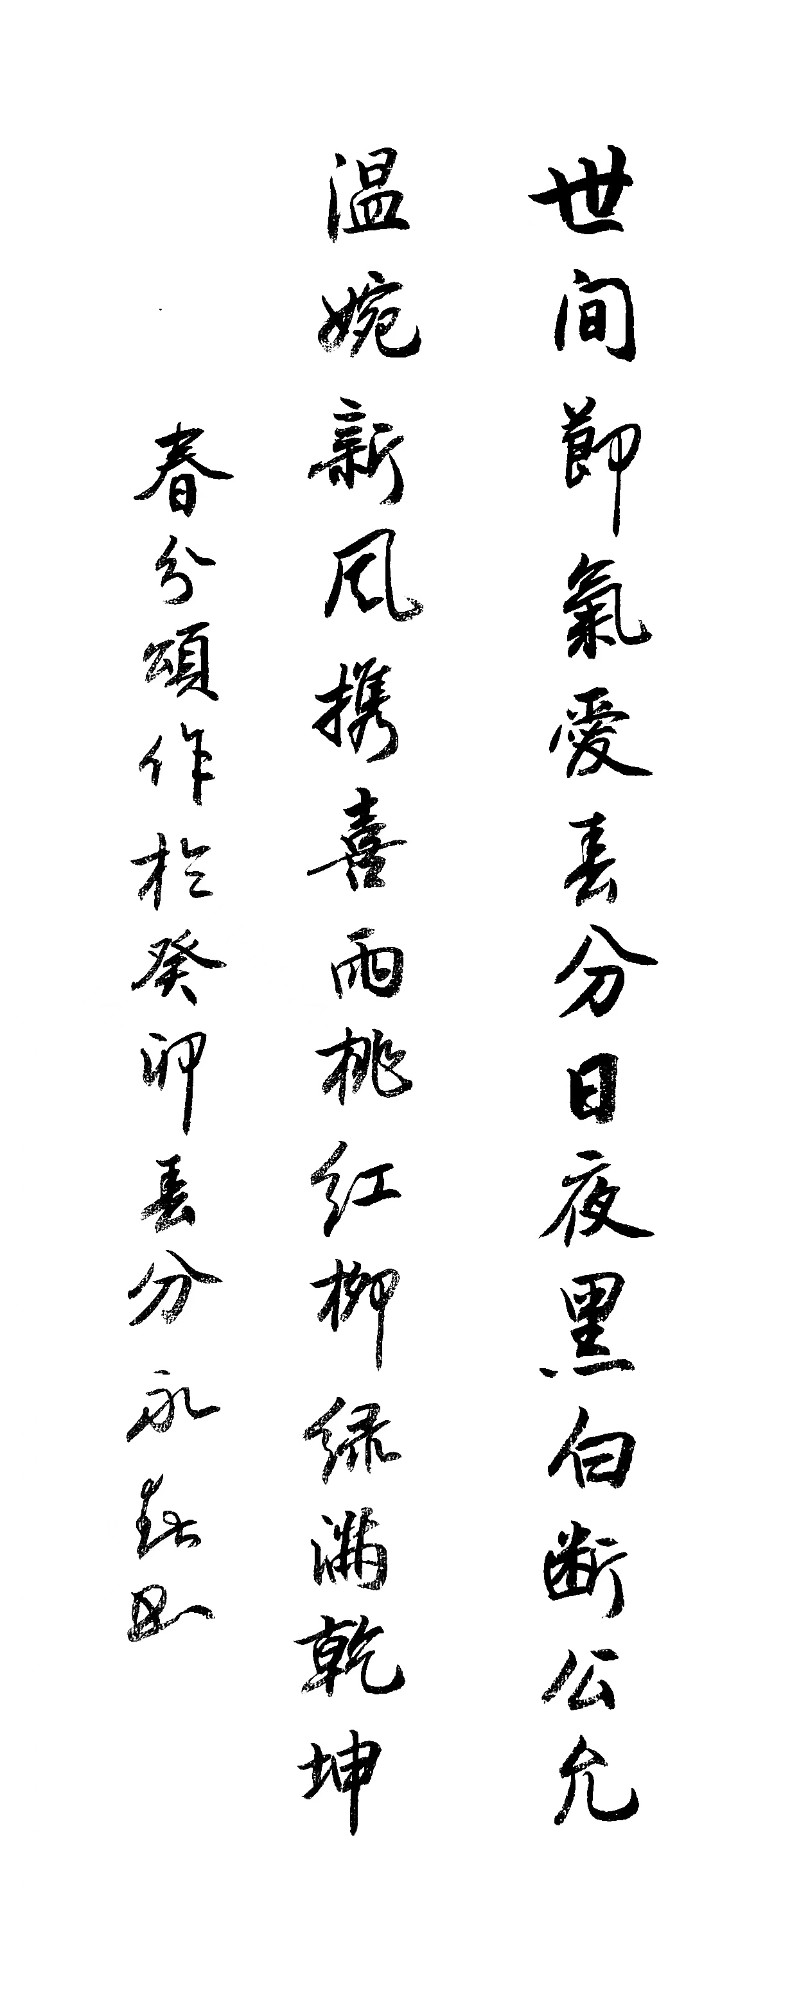 世间節氣愛春分日夜黑白断公允
温婉新风携喜雨桃红柳绿满乾坤
春分頌作於癸卯春分永